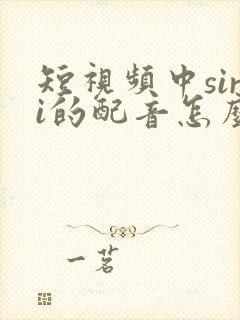 短視頻中sir
i的配音怎麼
一茗